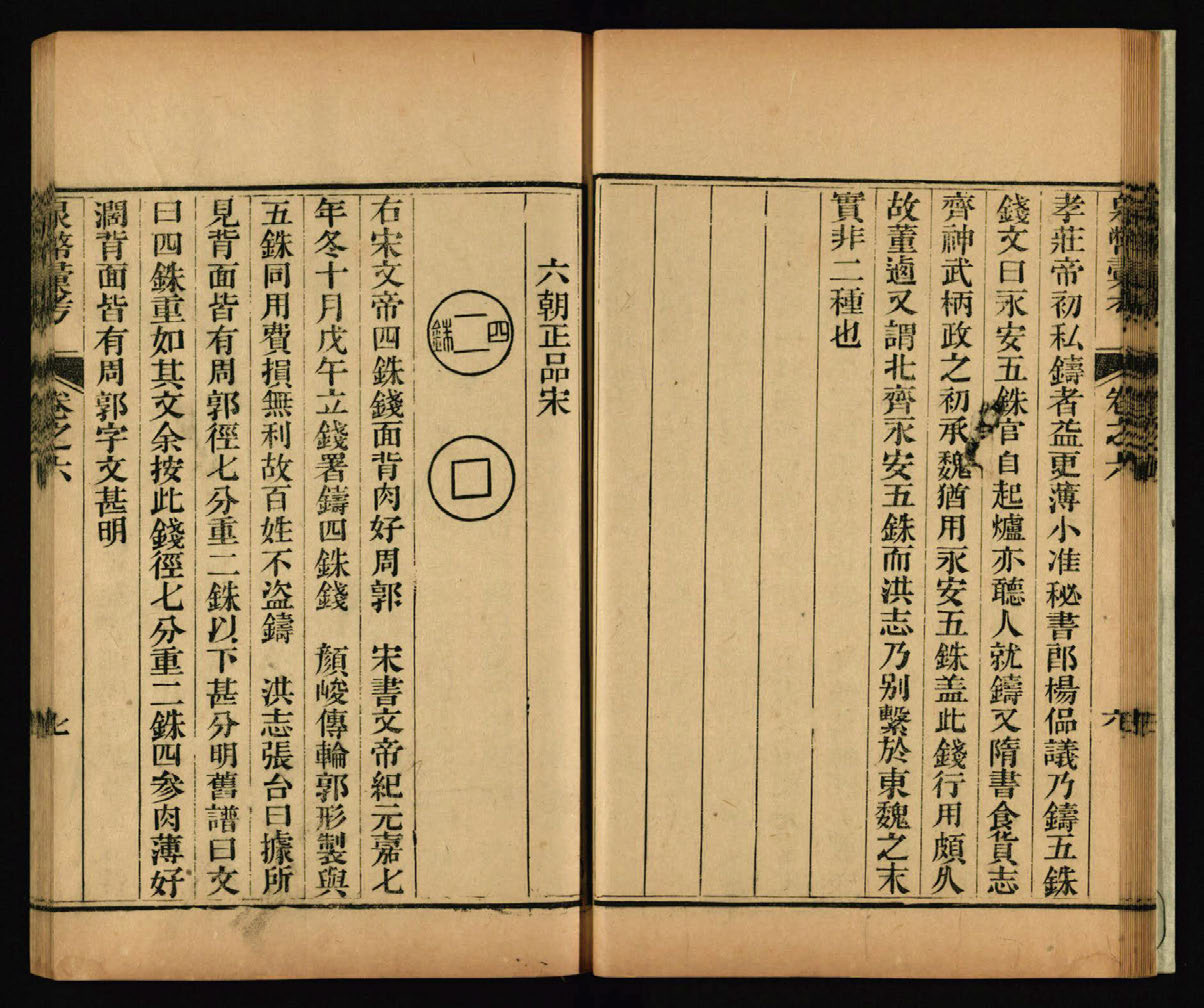 泉幣彙考
卷之六
六
孝莊帝初私鑄者益更薄小准秘書郎楊侃議乃鑄五銖
錢文曰永安五銖官自起爐亦聽人就鑄又隋書食貨志
齊神武柄政之初承魏猶用永安五銖盖此錢行用頗久
故董逌又謂北齊永安五銖而洪志乃别繫於東魏之末
實非二種也
六朝正品宋
四
銖
右宋文帝四銖錢面背肉好周郭 宋書文帝紀元嘉七
年冬十月戊午立錢署鑄四銖錢 顏峻傳輪郭形製與
五銖同用費損無利故百姓不盗鑄 洪志張台曰據所
見背面皆有周郭徑七分重二銖以下甚分明舊譜曰文
曰四銖重如其文余按此錢徑七分重二銖四参肉薄好
濶背面皆有周郭字文甚明
泉幣彙考
卷之六
七